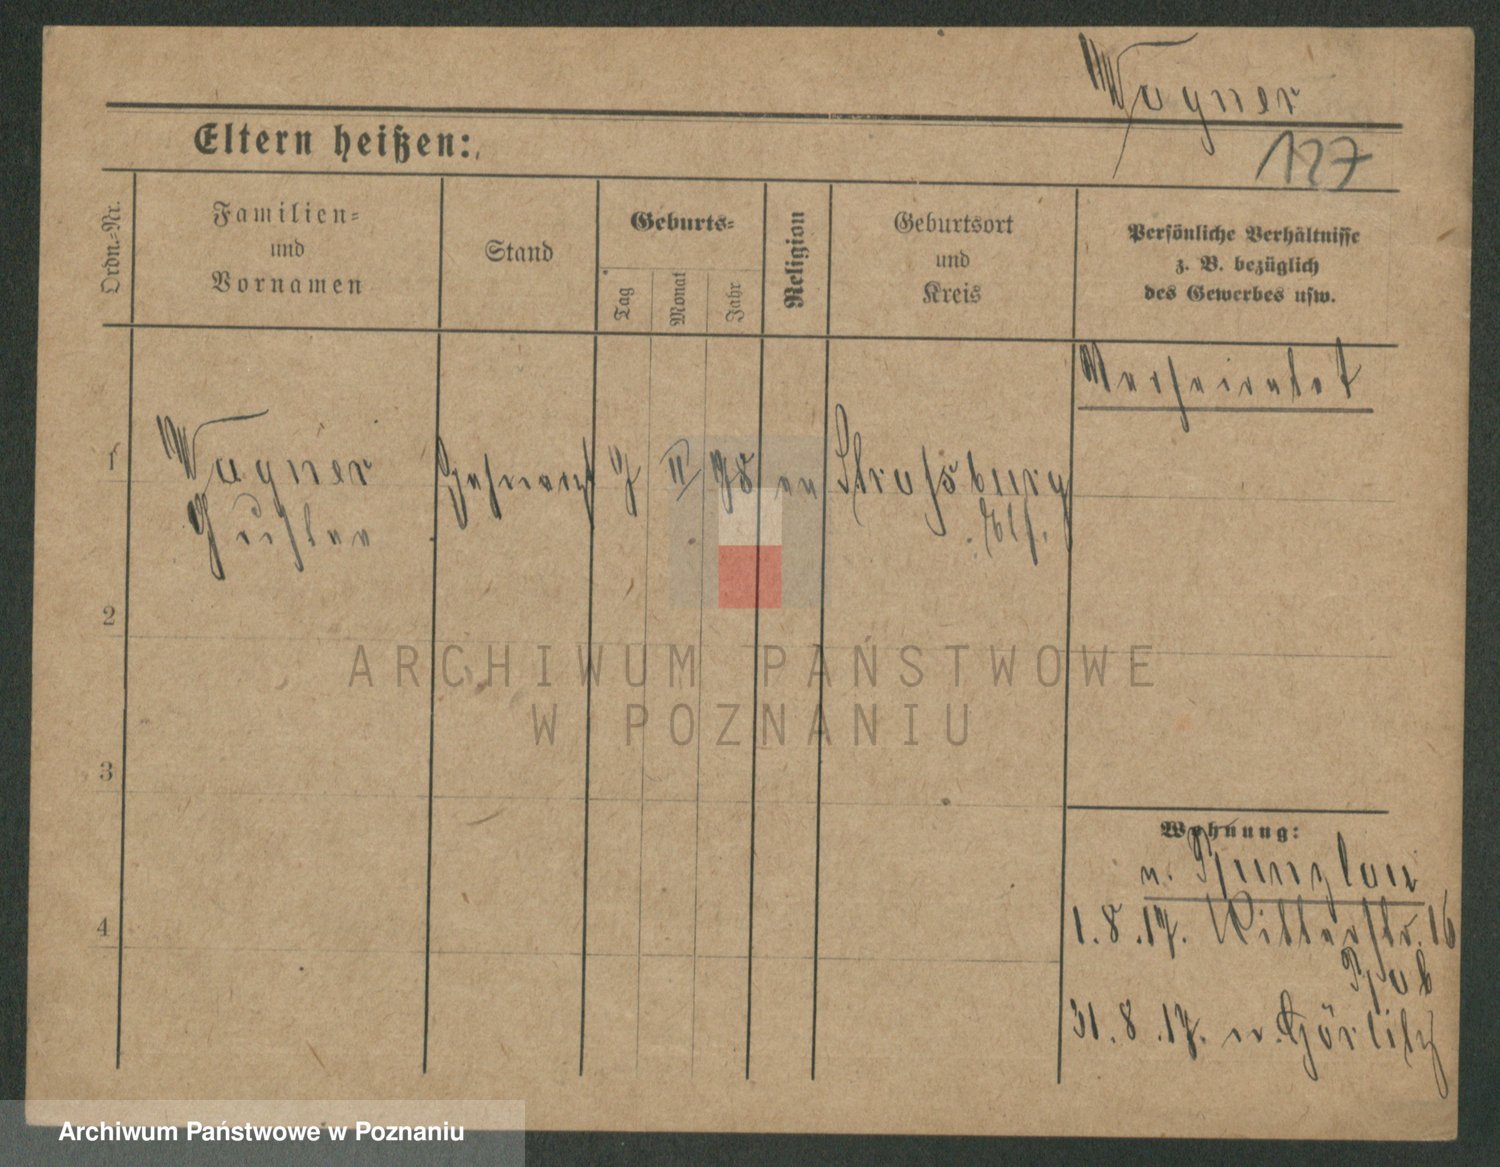 Wagner
127
Eltern heißen:
Ordn.-Nr.
Familien-
und
Vornamen
Stand
Geburts-
Tag
Monat
Jahr
Religion
Geburtsort
und
Kreis
Persönliche Verhältnisse
z. B. bezüglich
des Gewerbes usw.
Verheiratet
1
Wagner
II
ev
Strassburg
Els.
2
3
4
Wohnung:
n. Bunzlau
1.8.17. Ritterstr. 16
31.8.17. n. Görlitz
ARCHIWUM PAŃSTWOWE
W POZNANIU
Archiwum Państwowe w Poznaniu